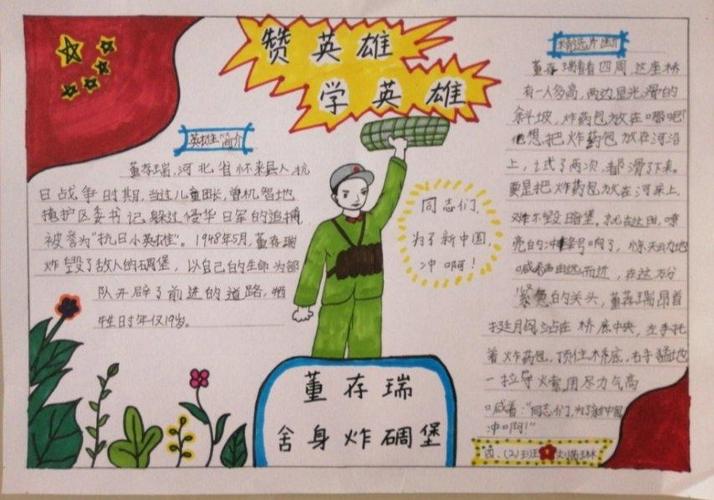 赞英雄
学英雄
英雄简介
董存瑞,河北省怀来县人,抗
日战争时期,当过儿童团长,曾机智地
掩护区委书记躲过侵华日军的追捕
被誉为"抗日小英雄"。1948年5月,董存瑞
炸毁了敌人的碉堡,以自己的生命为部
队开辟了前进的道路,牺
牲时年仅19岁。
同志们,
为了新中国,
冲啊!
董存瑞
舍身炸碉堡
精选片断
董存瑞看看四周,这座桥
有一人多高,两边是光滑的
斜坡,炸药包放在哪吧
他想把炸药包放在河沿
上,试了两次,都滑了下来。
要是把炸药包放在河床上,
难不毁暗堡。就在这时,嘹
亮的冲锋号响了,惊天动地
喊声由远而近,在这万分
紧急的关头,董存瑞昂首
挺胸站在桥底中央,左手托
着炸药包,顶住桥底,右手猛地
一拉导火索,用尽力气高
喊着:"同志们,为了新中国
冲啊!"
四、(2)班